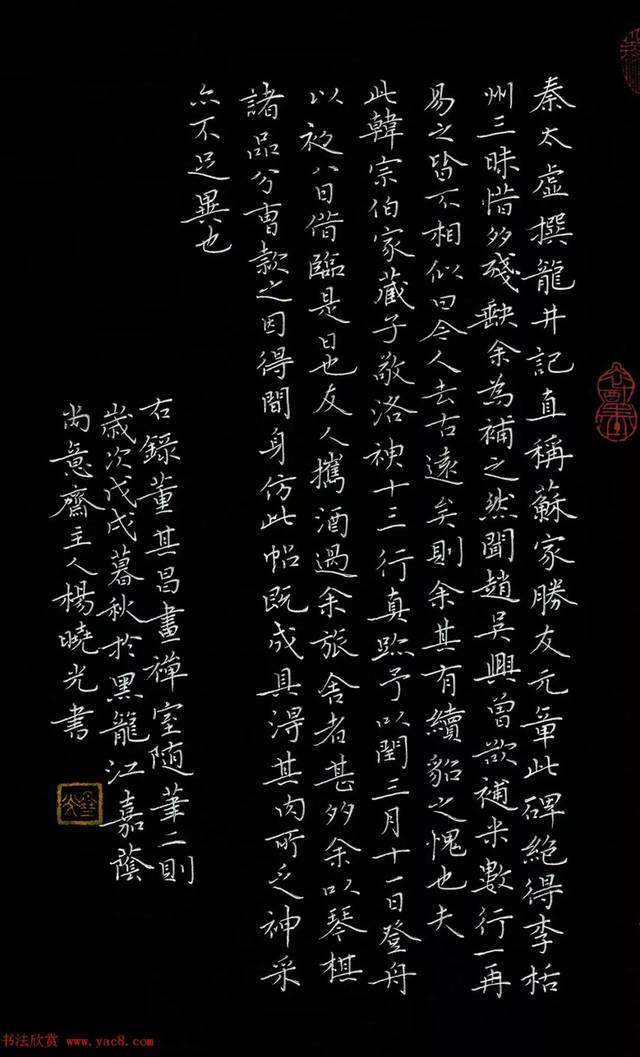 秦太虛撰龍井記直稱蘇家勝友元章此碑絕得李栝
州三昧惜多殘缺余為補之然聞趙吳興曾欲補米數行一再
易之皆不相似曰今人去古遠矣則余其有續貂之愧也夫
此韓宗伯家藏子敬洛神十三行真跡予以閏三月十一日登舟
以初八日借臨是日也友人攜酒過余旅舍者甚多余以琴棋
諸品分曹款之因得閒身仿此帖既成具得其肉所乏神采
亦不足異也
右錄董其昌畫禪室隨筆二則
歲次戊戌暮秋於黑龍江嘉蔭
尚意齋主人楊曉光書
书法欣赏 www.yac8.com